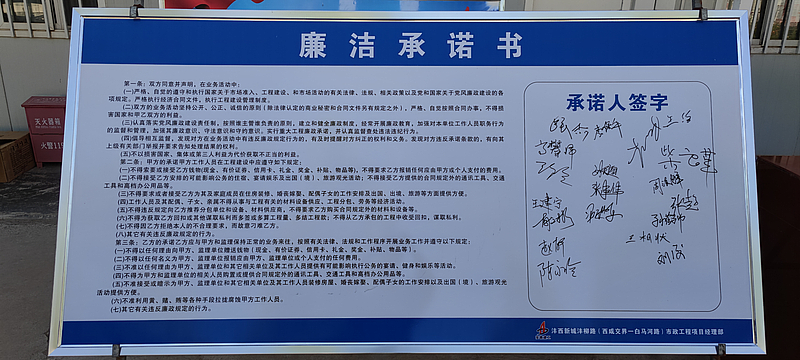 廉洁承诺书
第一条：双方同意并声明，在业务活动中：
(一)严格、自觉的遵守和执行国家关于市场准入、工程建设、和市场活动的有关法律、法规、相关政策以及党和国家关于党风廉政建设的各
项规定。严格执行经济合同文件，执行工程建设管理制度。
(二)双方的业务活动坚持公开、公正、诚信的原则(除法律认定的商业秘密和合同文件另有规定之外)，严格、自觉按照合同办事，不得损
害国家和甲乙双方的利益。
(三)认真落实党风廉政建设责任制，按照谁主管谁负责的原则，建立和健全廉政制度，经常开展廉政教育，加强对本单位工作人员职务行为
的监督和管理，加强其廉政意识、守法意识和守约意识。实行重大工程廉政承诺，并认真监督查处违法违纪行为。
(四)倡导相互监督，发现对方在业务活动中有违反廉政规定行为的，有及时提醒对方纠正的权利和义务。发现对方违反承诺条款的，有向其
上级有关部门举报并要求告知处理结果的权利。
(五)不以损害国家、集体或第三人利益为代价获取不正当的利益。
第二条：甲方的承诺甲方工作人员在工程建设中应遵守如下规定：
(一)不得索要或接受乙方钱物(现金、有价证券、信用卡、礼金、奖金、补贴、物品等)，不得要求乙方报销任何应由甲方或个人支付的费用。
(二)不得接受乙方安排的可能影响公务的住宿、宴请娱乐及出国(境)、旅游观光活动；不得接受乙方提供的合同规定外的通讯工具、交通工
具和高档办公用品等。
(三)不得要求或者接受乙方为其及家庭成员在住房装修、婚丧嫁娶、配偶子女的工作安排及出国、出境、旅游等方面提供方便。
(四)工作人员及其配偶、子女、亲属不得从事与工程有关的材料设备供应、工程分包、劳务等经济活动。
(五)不得违反规定向乙方推荐分包单位和设备、材料供应商，不得要求乙方购买合同规定外的材料和设备等。
(六)不得为获取乙方回扣或其他谋取私利而多签或多算工程量、多结工程款；不得从乙方承包的工程中收受回扣，谋取私利。
(七)不得因乙方拒绝本人的不合理要求，而故意刁难乙方。
(八)其它有关违反廉政规定的行为。
第三条：乙方的承诺乙方应与甲方和监理保持正常的业务来往，按照有关法律、法规和工作程序开展业务工作并遵守以下规定：
(一)不得以任何理由向甲方、监理单位赠送钱物(现金、有价证券、信用卡、礼金、奖金、补贴、物品等)。
(二)不得以任何名义为甲方、监理单位报销应由甲方、监理单位或个人支付的任何费用。
(三)不准以任何理由为甲方、监理单位和其它相关单位及其工作人员提供有可能影响执行公务的宴请、健身和娱乐等活动。
(四)不得为甲方和监理单位的相关人员购置或提供合同规定外的通讯工具、交通工具和高档办公用品等。
(五)不准接受或暗示为甲方、监理单位和其它相关单位及其工作人员装修房屋、婚丧嫁娶、配偶子女的工作安排以及出国(境)、旅游观光
活动提供方便。
(六)不准利用黄、赌、熊等各种手段拉拢腐蚀甲方工作人员。
(七)其它有关违反廉政规定的行为。
承诺人签字
沣西新城沣柳路(西咸交界—白马河路)市政工程项目经理部
灭火器箱
火警119